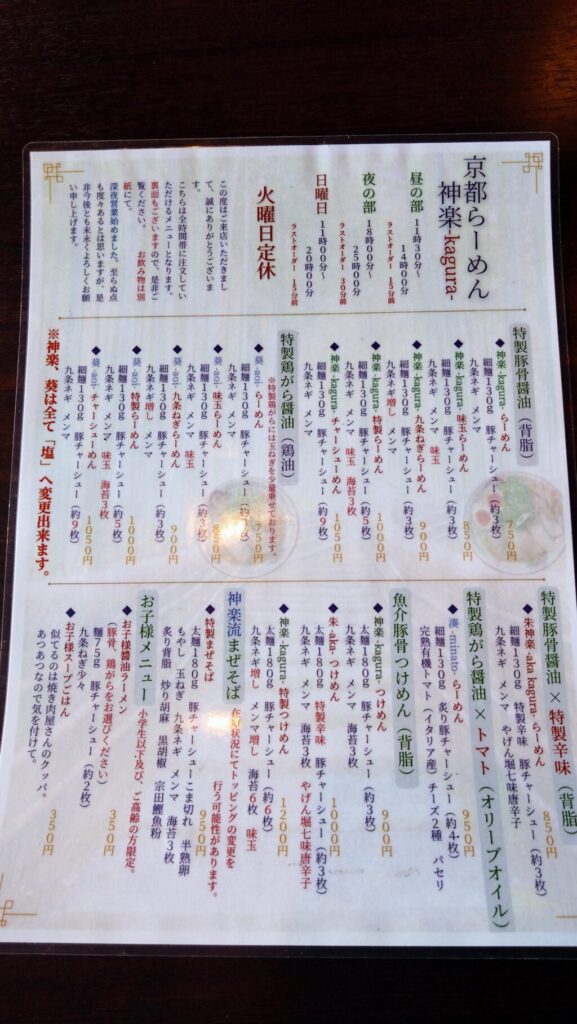 京都らーめん
神楽-kagura-
昼の部 11時30分~
14時00分
ラストオーダー 15分前
夜の部 18時00分~
25時00分
ラストオーダー 30分前
日曜日 11時00分~
20時00分
ラストオーダー 15分前
火曜日定休
この度はご来店いただきまし
て、誠にありがとうございま
す。
こちらは全時間帯に注文してい
ただけるメニューとなります。
裏面もございますので、是非ご
覧ください。 お飲み物は別
紙にて。
深夜営業始めました。至らぬ点
も度々あるとは思いますが、是
非今後とも末永くよろしくお願
い申し上げます。
特製豚骨醤油（背脂）
◆神楽-kagura- らーめん
750円
細麺130g 豚チャーシュー（約3枚）
九条ネギ メンマ
◆神楽-kagura- 味玉らーめん
850円
細麺130g 豚チャーシュー（約3枚）
九条ネギ メンマ 味玉
◆神楽-kagura- 九条ねぎらーめん
900円
細麺130g 豚チャーシュー（約3枚）
九条ネギ増し メンマ
◆神楽-kagura- 特製らーめん
1000円
細麺130g 豚チャーシュー（約5枚）
九条ネギ メンマ 味玉 海苔3枚
◆神楽-kagura- チャーシューらーめん
1050円
細麺130g 豚チャーシュー（約9枚）
九条ネギ メンマ
特製鶏がら醤油（鶏油）
※特製鶏がらには玉ねぎを少量乗せております。
◆葵-aoi- らーめん
750円
細麺130g 豚チャーシュー（約3枚）
九条ネギ メンマ
◆葵-aoi- 味玉らーめん
850円
細麺130g 豚チャーシュー（約3枚）
九条ネギ メンマ 味玉
◆葵-aoi- 九条ねぎらーめん
900円
細麺130g 豚チャーシュー（約3枚）
九条ネギ増し メンマ
◆葵-aoi- 特製らーめん
1000円
細麺130g 豚チャーシュー（約5枚）
九条ネギ メンマ 味玉 海苔3枚
◆葵-aoi- チャーシューめん
1050円
細麺130g 豚チャーシュー（約9枚）
九条ネギ メンマ
※神楽、葵は全て「塩」へ変更出来ます。
特製豚骨醤油×特製辛味（背脂）
◆朱神楽-aka kagura- らーめん
850円
細麺130g 特製辛味 豚チャーシュー（約3枚）
九条ネギ メンマ やげん堀七味唐辛子
特製鶏がら醤油×トマト（オリーブオイル）
◆湊-minato- らーめん
950円
細麺130g 炙り豚チャーシュー（約4枚）
完熟有機トマト（イタリア産）チーズ2種 パセリ
魚介豚骨つけめん（背脂）
◆神楽-kagura- つけめん
900円
太麺180g 豚チャーシュー（約3枚）
九条ネギ メンマ 海苔3枚
◆朱-aka- つけめん
1000円
太麺180g 特製辛味 豚チャーシュー（約3枚）
九条ネギ メンマ 海苔3枚 やげん堀七味唐辛子
◆神楽-kagura- 特製つけめん
1200円
太麺180g 豚チャーシュー（約6枚）
九条ネギ増し メンマ増し 海苔6枚 味玉
神楽流 まぜそば
在庫状況にてトッピングの変更を
行う可能性があります。
◆特製まぜそば
950円
太麺180g 豚チャーシューこま切れ 半熟卵
もやし 玉ねぎ 九条ネギ メンマ 海苔3枚
炙り背脂 炒り胡麻 黒胡椒 宗田鰹魚粉
お子様メニュー
小学生以下及び、ご高齢の方限定。
◆お子様醤油ラーメン
350円
（豚骨、鶏がらをお選びください）
麺75g 豚チャーシュー（約2枚）
九条ねぎ少々
◆お子様スープごはん
350円
似てるのは焼き肉屋さんのクッパ。
あつあつなので気を付けて。